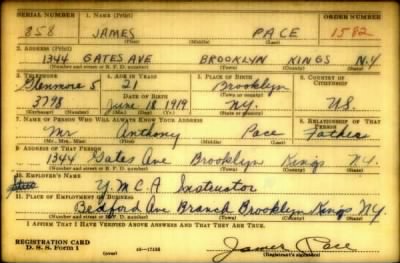 SERIAL NUMBER 1. NAME (Print) ORDER NUMBER
858 JAMES PACE 1582
(First) (Middle) (Last)
2. ADDRESS (Print)
1344 GATES AVE BROOKLYN KINGS N.Y
(Number and street or R. F. D. number) (Town) (County) (State)
3. TELEPHONE 4. AGE IN YEARS 5. PLACE OF BIRTH 6. COUNTRY OF CITIZENSHIP
Glenmore 5 21 Brooklyn
DATE OF BIRTH (Town or county)
3798 June 18 1919 N.Y. U.S.
(Exchange) (Number) (Mo.) (Day) (Yr.) (State or country)
7. NAME OF PERSON WHO WILL ALWAYS KNOW YOUR ADDRESS 8. RELATIONSHIP OF THAT PERSON
Mr Anthony Pace Father
(Mr., Mrs., Miss) (First) (Middle) (Last)
9. ADDRESS OF THAT PERSON
1344 Gates Ave Brooklyn Kings N.Y.
(Number and street or R. F. D. number) (Town) (County) (State)
10. EMPLOYER'S NAME
Y.M.C.A Instructor
11. PLACE OF EMPLOYMENT OR BUSINESS
Bedford Ave Branch Brooklyn Kings N.Y.
(Number and street or R. F. D. number) (Town) (County) (State)
I AFFIRM THAT I HAVE VERIFIED ABOVE ANSWERS AND THAT THEY ARE TRUE.
REGISTRATION CARD
D. S. S. Form 1 James Pace
(Registrant's signature)